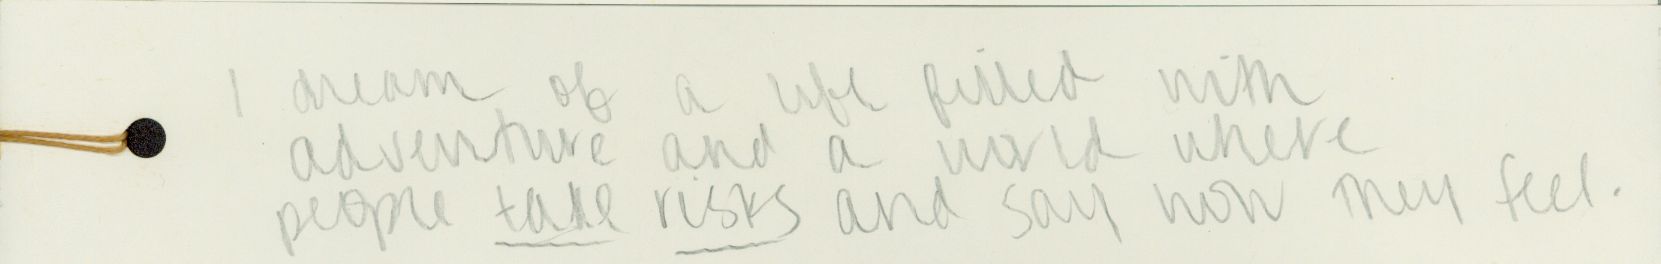 I dream of a life filled with
adventure and a world where
people take risks and say how they feel.